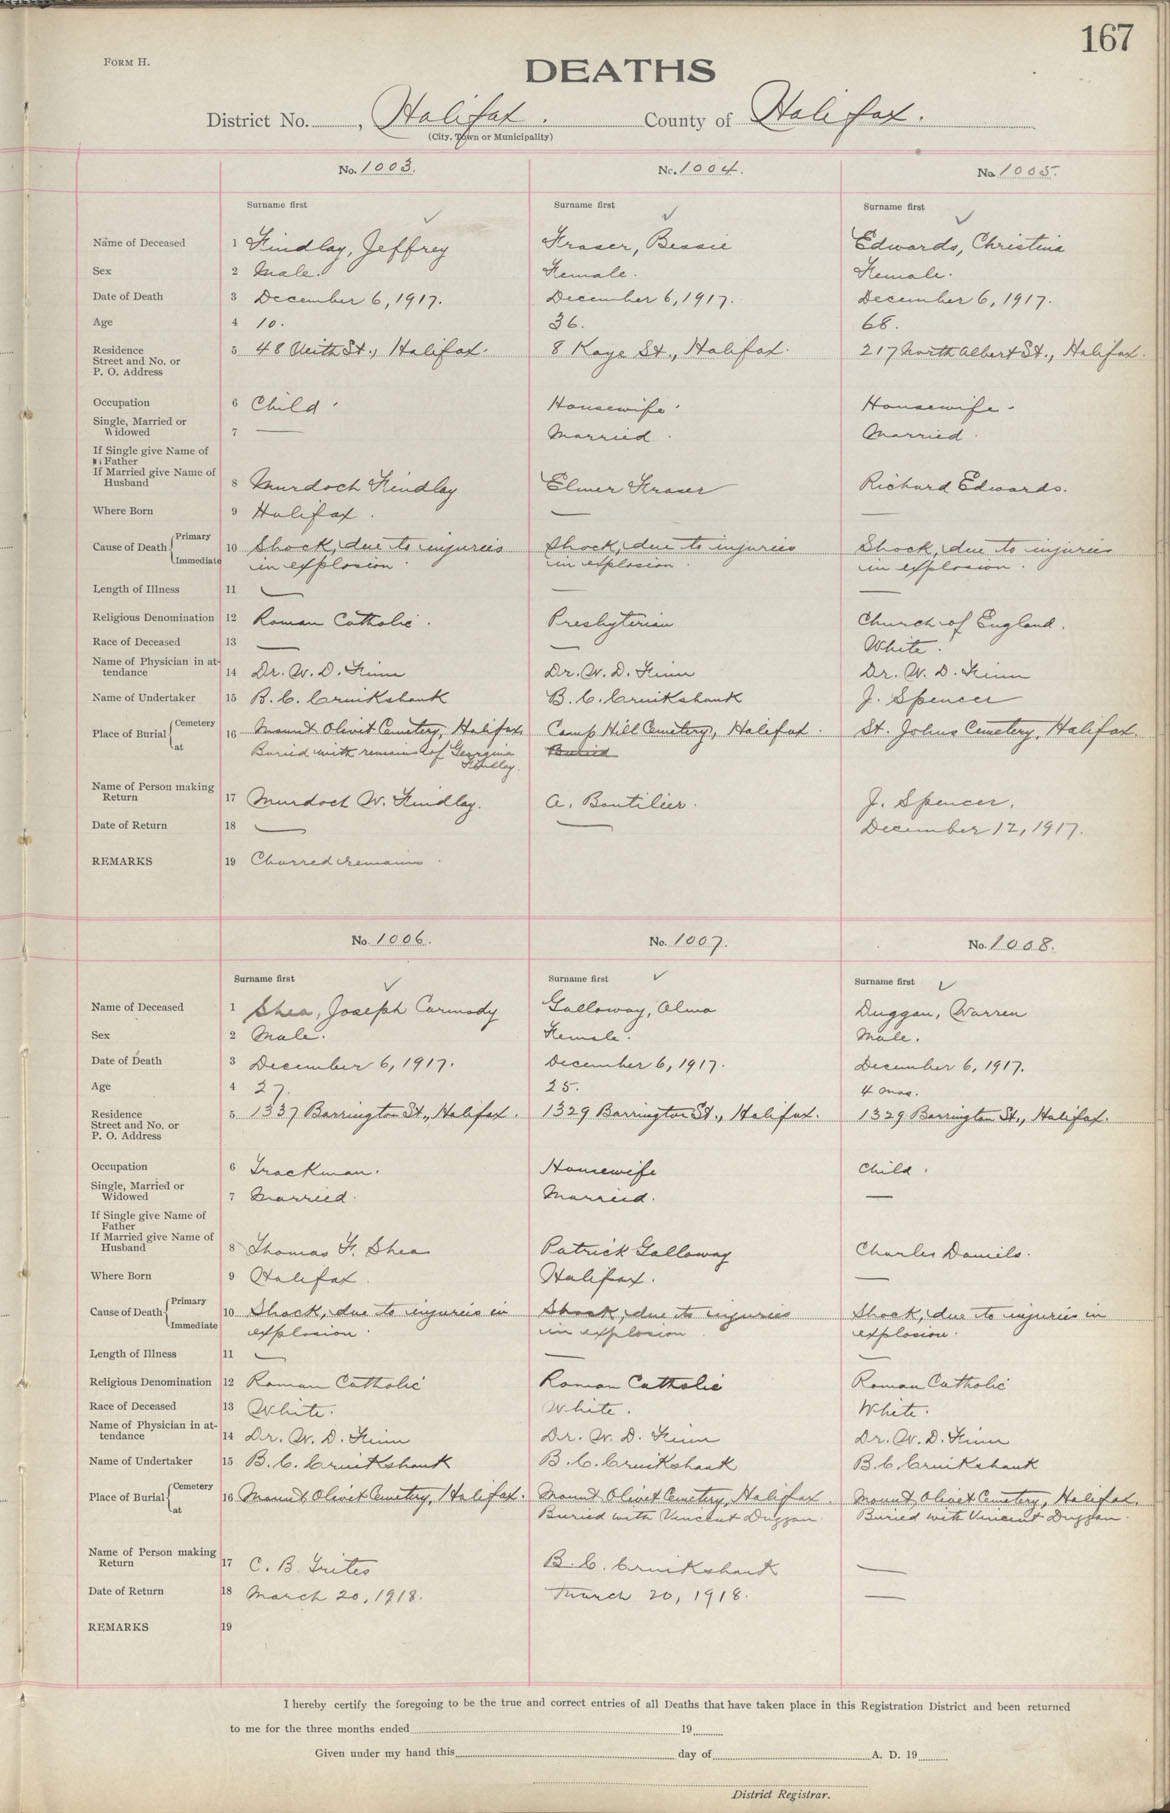 167
FORM H.
DEATHS
District No. , Halifax. County of Halifax.
(City, Town or Municipality)
No. 1003. No. 1004. No. 1005.
Surname first Surname first Surname first
Name of Deceased 1 Findlay, Jeffrey Fraser, Bessie Edwards, Christina
Sex 2 Male. Female. Female.
Date of Death 3 December 6, 1917. December 6, 1917. December 6, 1917.
Age 4 10. 36. 68.
Residence
Street and No. or
P. O. Address
5 48 Veith St., Halifax. 8 Kaye St., Halifax. 217 North Albert St., Halifax.
Occupation 6 Child. Housewife. Housewife.
Single, Married or
Widowed 7 — Married. Married.
If Single give Name of
Father
If Married give Name of
Husband 8 Murdoch Findlay Elmer Fraser Richard Edwards.
Where Born 9 Halifax. — —
Cause of Death Primary
Immediate
10 Shock, due to injuries Shock, due to injuries Shock, due to injuries
in explosion. in explosion. in explosion.
Length of Illness 11 — — —
Religious Denomination 12 Roman Catholic. Presbyterian Church of England.
Race of Deceased 13 — — White.
Name of Physician in at-
tendance 14 Dr. W. D. Finn Dr. W. D. Finn Dr. W. D. Finn
Name of Undertaker 15 B. C. Cruikshank B. C. Cruikshank J. Spencer
Place of Burial Cemetery
at
16 Mount Olivet Cemetery, Halifax Camp Hill Cemetery, Halifax. St. Johns Cemetery, Halifax.
Buried with remains of Georgina Buried
Findlay.
Name of Person making
Return 17 Murdoch W. Findlay. A. Boutilier. J. Spencer.
Date of Return 18 — — December 12, 1917.
REMARKS 19 Charred remains.
No. 1006. No. 1007. No. 1008.
Surname first Surname first Surname first
Name of Deceased 1 Shea, Joseph Carmody Galloway, Alma Duggan, Warren
Sex 2 Male. Female. Male.
Date of Death 3 December 6, 1917. December 6, 1917. December 6, 1917.
Age 4 27. 25. 4 mos.
Residence
Street and No. or
P. O. Address
5 1337 Barrington St., Halifax. 1329 Barrington St., Halifax. 1329 Barrington St., Halifax.
Occupation 6 Trackman. Housewife Child.
Single, Married or
Widowed 7 Married. Married. —
If Single give Name of
Father
If Married give Name of
Husband 8 Thomas F. Shea Patrick Galloway Charles Daniels.
Where Born 9 Halifax. Halifax. —
Cause of Death Primary
Immediate
10 Shock, due to injuries in Shock, due to injuries Shock, due to injuries in
explosion. in explosion explosion.
Length of Illness 11 — — —
Religious Denomination 12 Roman Catholic Roman Catholic Roman Catholic
Race of Deceased 13 White. White. White.
Name of Physician in at-
tendance 14 Dr. W. D. Finn Dr. W. D. Finn Dr. W. D. Finn
Name of Undertaker 15 B. C. Cruikshank B. C. Cruikshank B. C. Cruikshank
Place of Burial Cemetery
at
16 Mount Olivet Cemetery, Halifax. Mount Olivet Cemetery, Halifax. Mount Olivet Cemetery, Halifax.
Buried with Vincent Duggan Buried with Vincent Duggan.
Name of Person making
Return 17 C. B. Trites B. C. Cruikshank —
Date of Return 18 March 20, 1918. March 20, 1918. —
REMARKS 19
I hereby certify the foregoing to be the true and correct entries of all Deaths that have taken place in this Registration District and been returned
to me for the three months ended 19
Given under my hand this day of A. D. 19
District Registrar.